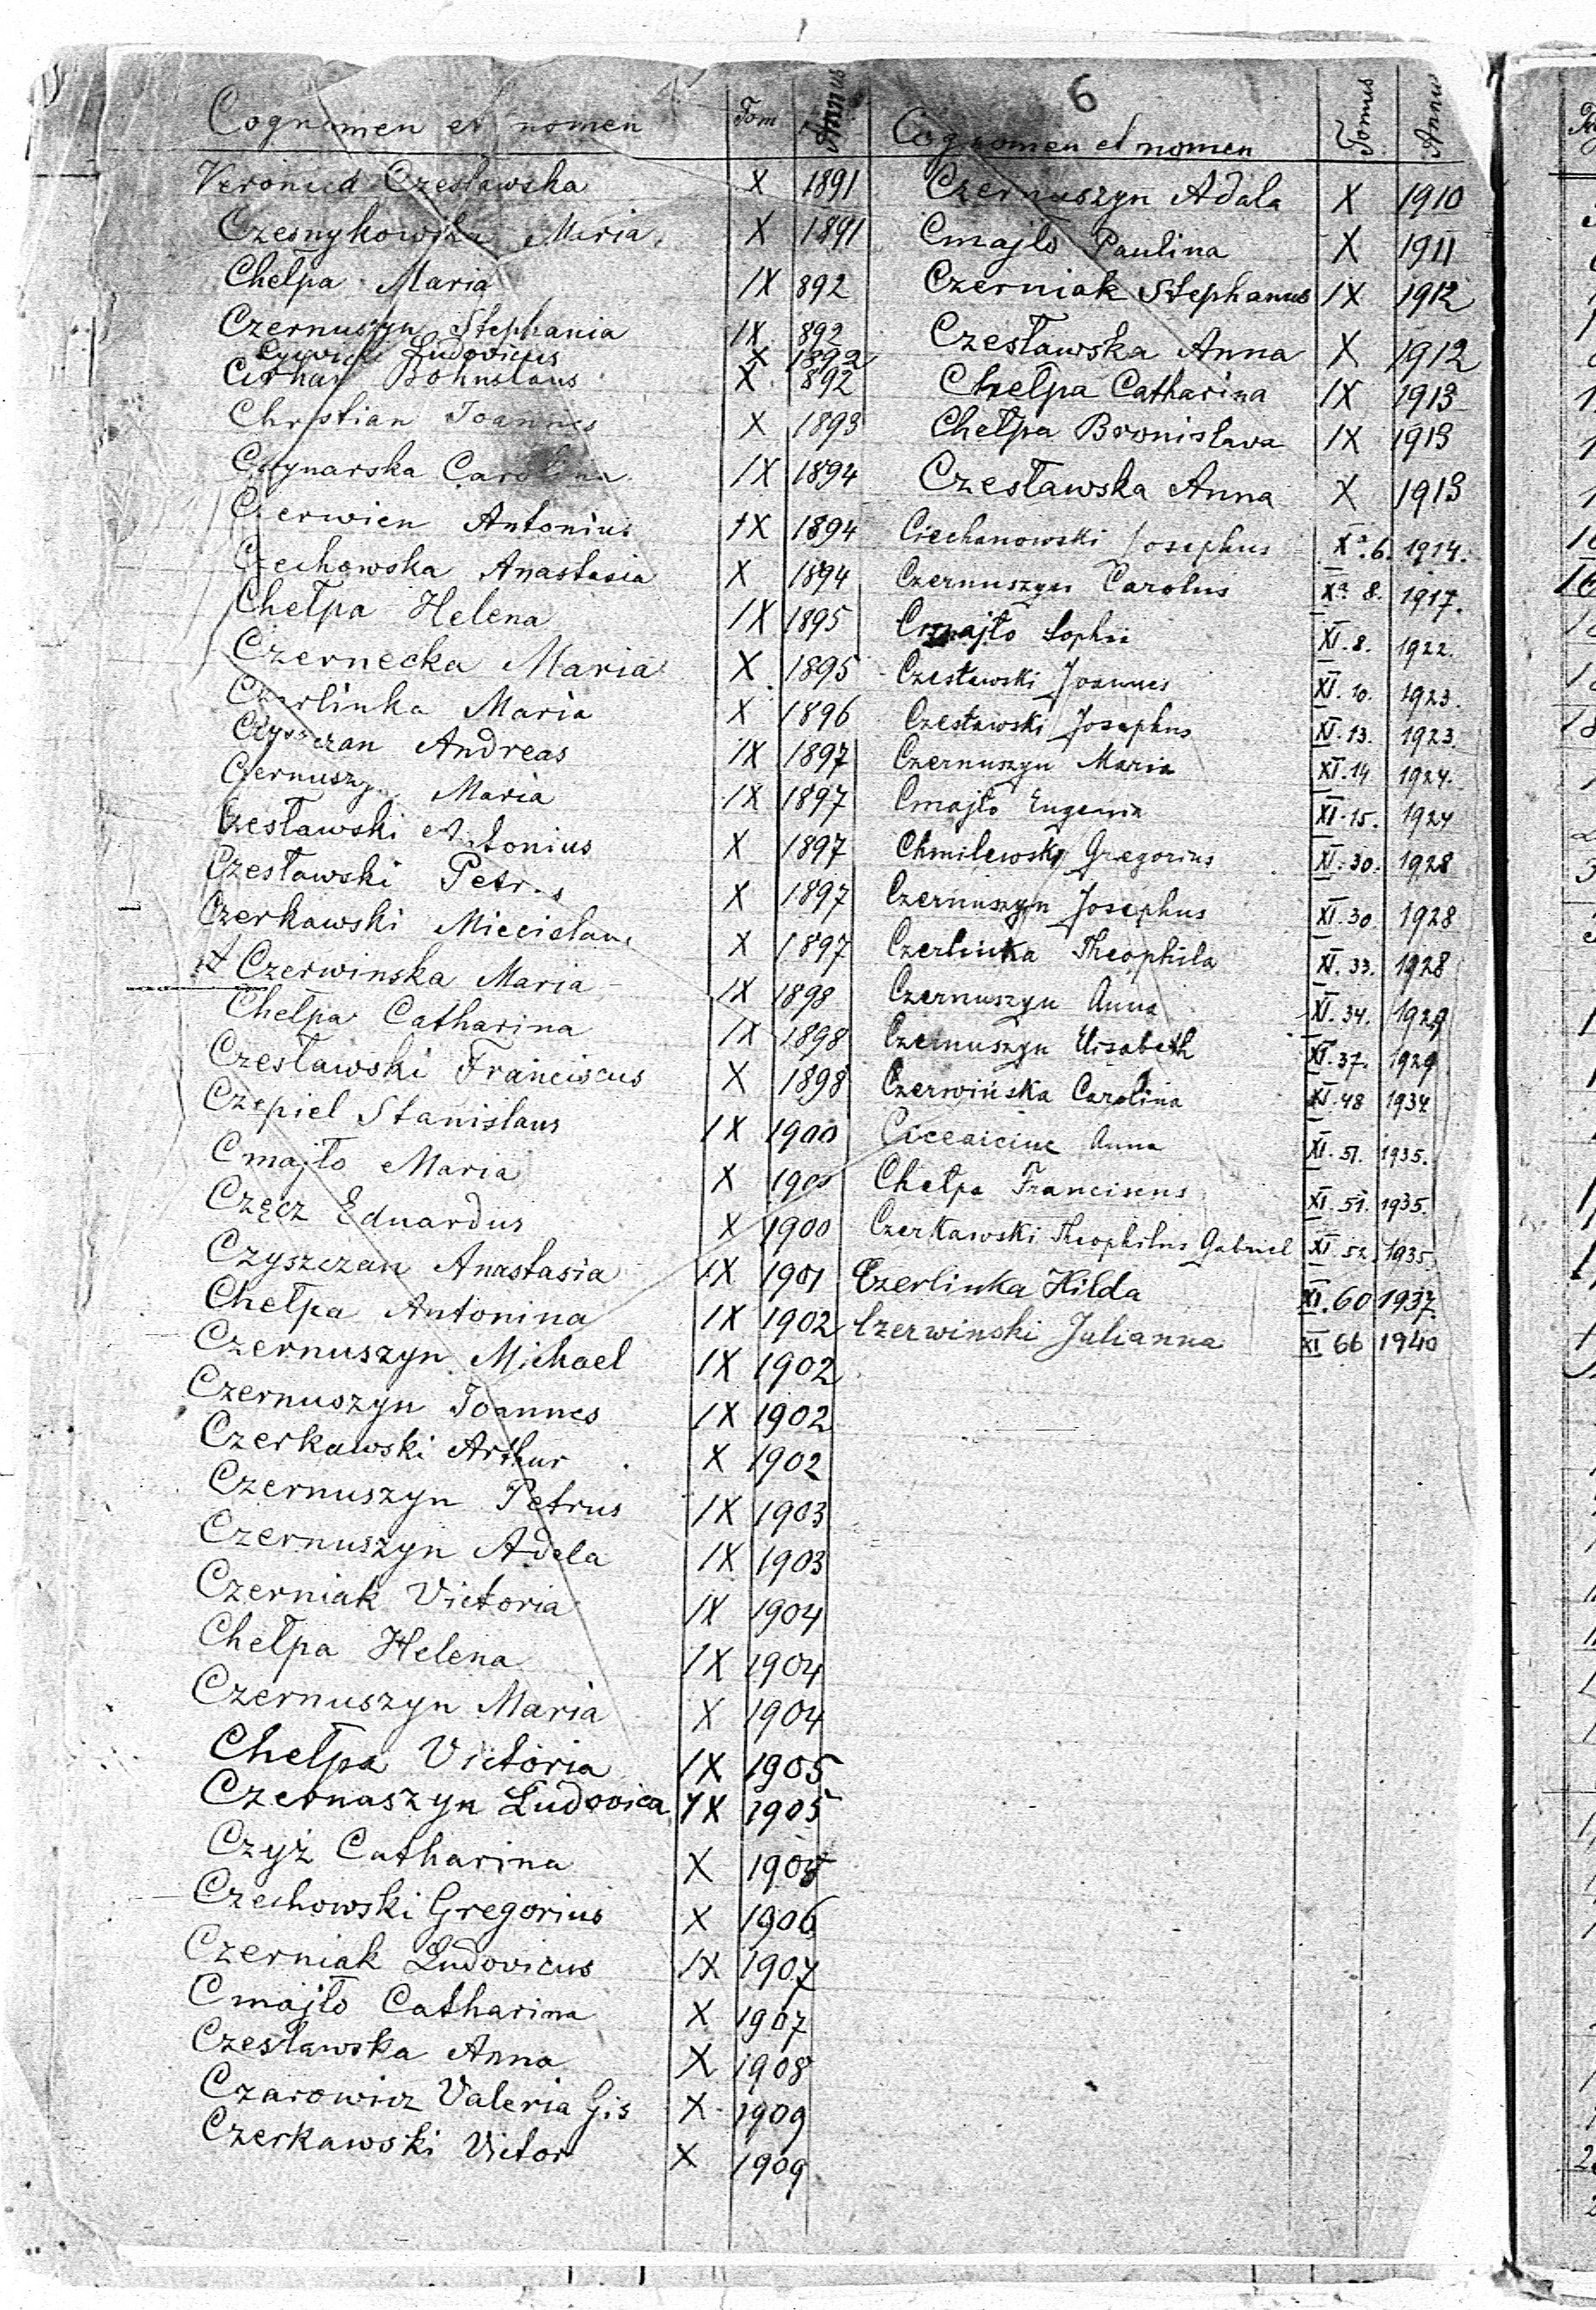 6
Cognomen et nomen Tom Annus
Veronica Czesławska X 1891
Maria X 1891
Chełpa Maria IX 892
Czernuszyn Stephania IX 892
Ludovicus X 1892
X 892
Christian Joannes X 1893
Carolina IX 1894
Czerwien Antonius IX 1894
Czechowska Anastasia X 1894
Chełpa Helena IX 1895
Czernecka Maria X 1895
Czerlinka Maria X 1896
Czyszczan Andreas IX 1897
Czernuszyn Maria IX 1897
Czesławski Antonius X 1897
Czesławski Petrus X 1897
Czerkawski Miecislaus X 1897
Czerwinska Maria IX 1898
Chełpa Catharina IX 1898
Czesławski Franciscus X 1898
Czepiel Stanislaus IX 1900
Cmajło Maria X 1900
Częcz Eduardus X 1900
Czyszczan Anastasia IX 1901
Chełpa Antonina IX 1902
Czernuszyn Michael IX 1902
Czernuszyn Joannes IX 1902
Czerkawski Arthur X 1902
Czernuszyn Petrus IX 1903
Czernuszyn Adela IX 1903
Czerniak Victoria IX 1904
Chełpa Helena IX 1904
Czernuszyn Maria X 1904
Chełpa Victoria IX 1905
Czernaszyn Ludovica IX 1905
Czyż Catharina X 1905
Czechowski Gregorius X 1906
Czerniak Ludovicus IX 1907
Cmajło Catharina X 1907
Czesławska Anna X 1908
Czarowicz Valeria Gis X 1909
Czerkawski Victor X 1909
Cognomen et nomen Tomus Annus
Czernuszyn Adala X 1910
Cmajło Paulina X 1911
Czerniak Stephanus IX 1912
Czesławska Anna X 1912
Chełpa Catharina IX 1913
Chełpa Bronisława IX 1913
Czesławska Anna X 1913
Ciechanowski Josephus Xa. 6. 1914.
Czernuszyn Carolus Xa. 8. 1917.
Cmajło Sophii XI. 8. 1922.
Czesławski Joannes XI. 10. 1923.
Czesławski Josephus XI. 13. 1923.
Czernuszyn Maria XI. 14 1924.
Cmajło Eugenia XI. 15. 1924
Chmilewsky Gregorius XI. 30. 1928
Czernuszyn Josephus XI. 30. 1928
Czerlinka Theophila XI. 33. 1928
Czernuszyn Anna XI. 34. 1929
Czernuszyn Elisabeth XI. 37. 1929
Czerwińska Carolina XI. 48 1934
Anna XI. 51. 1935.
Chełpa Franciscus XI. 51. 1935.
Czerkawski Theophilus Gabriel XI. 52. 1935
Czerlinka Hilda XI. 60 1937.
Czerwinski Julianna XI 66 1940